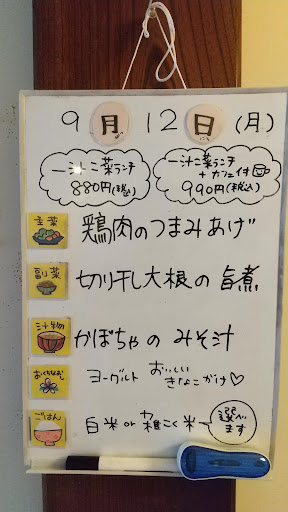 9月12日(月)
一汁二菜ランチ
880円(税込)
一汁二菜ランチ
+カフェ付
990円(税込)
主菜
鶏肉のつまみあげ
副菜
切り干し大根の旨煮
汁物
かぼちゃの みそ汁
おくちなおし
ヨーグルト おいしい
きなこがけ♡
ごはん
白米 or 雑こく米
選べ
ます